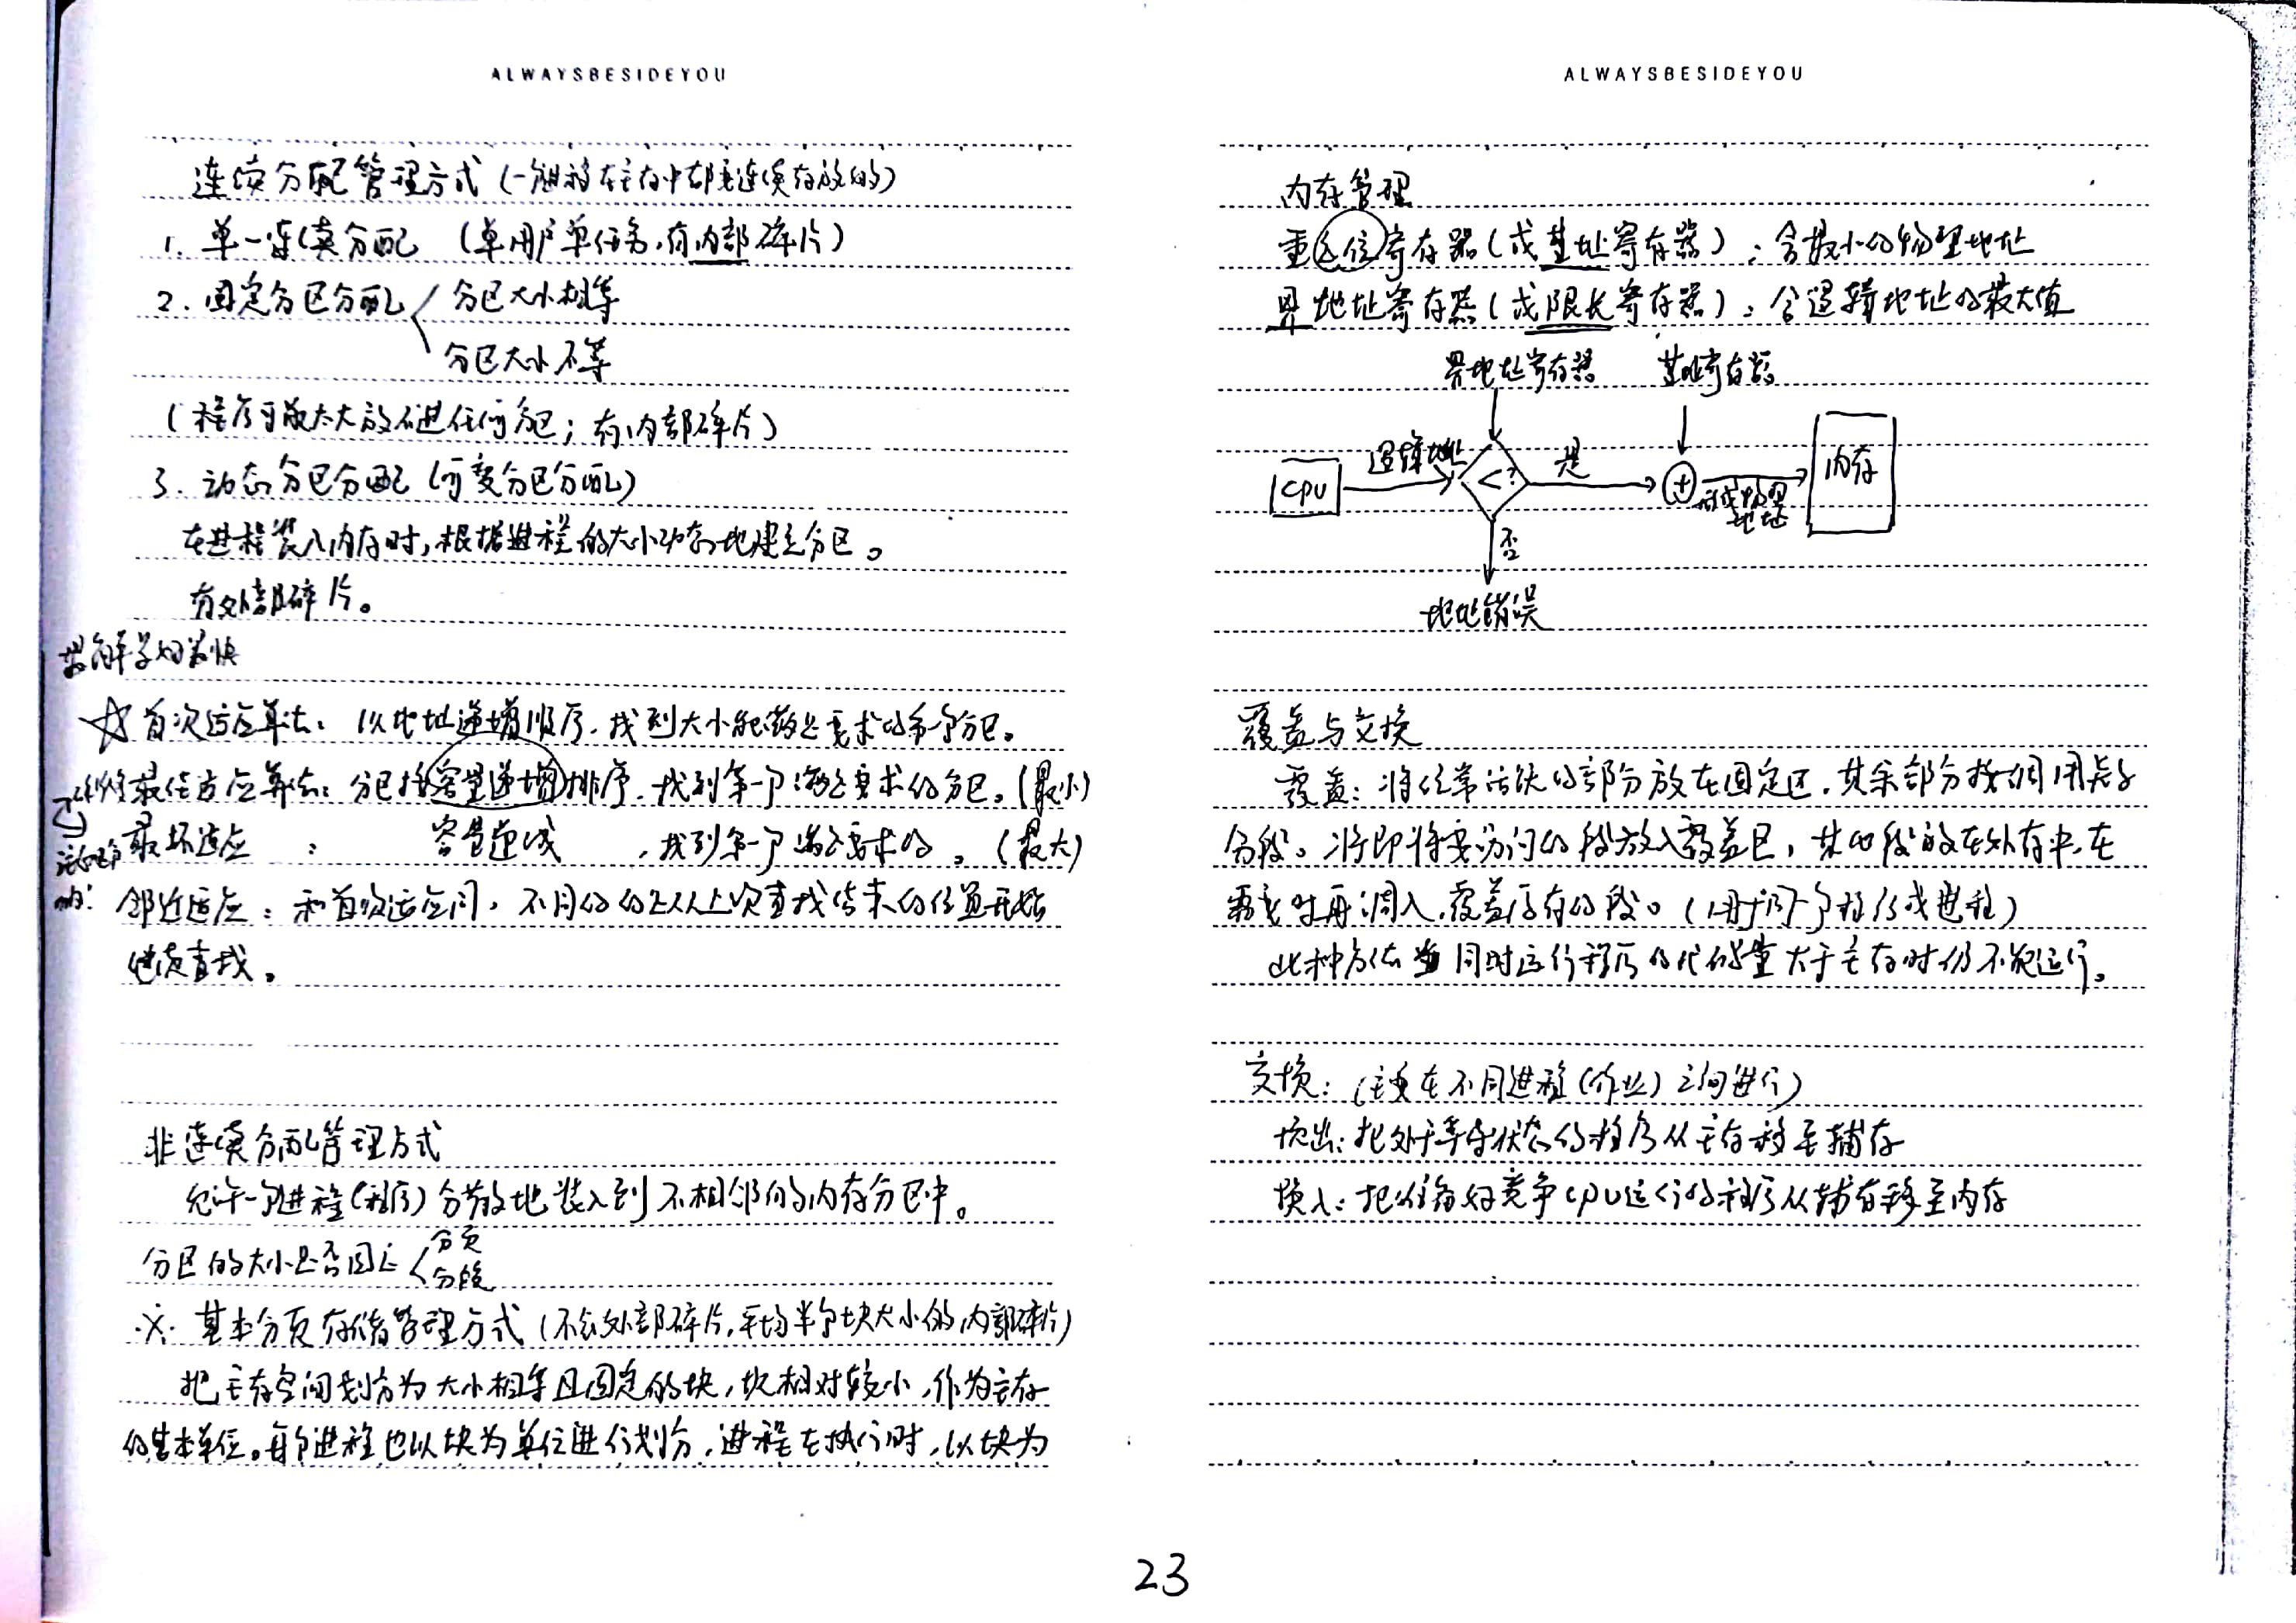 ALWAYSBESIDEYOU
连续分配管理方式(一个进程在主存中都是连续存放的)
1. 单一连续分配 (单用户单任务,有内部碎片)
2. 固定分区分配 分区大小相等
分区大小不等
(程序可能太大放不进任何分区;有内部碎片)
3. 动态分区分配(可变分区分配)
在进程装入内存时,根据进程的大小动态地建立分区。
有外部碎片。
最简单最好最快
☆首次适应算法:以地址递增顺序,找到大小能满足要求的第一个分区。
最佳适应算法:分区按容量递增排序,找到第一个满足要求的分区。(最小)
最坏适应 : 容量递减 ,找到第一个满足要求的。(最大)
邻近适应:和首次适应同,不同的是从上次查找结束的位置开始
继续查找。
非连续分配管理方式
允许一个进程(程序)分散地装入到不相邻的内存分区中。
分区的大小是否固定 分页
分段
※ 基本分页存储管理方式(不会外部碎片,平均半个块大小的内部碎片)
把主存空间划分为大小相等且固定的块,块相对较小,作为主存
的基本单位。每个进程也以块为单位进行划分,进程在执行时,以块为
ALWAYSBESIDEYOU
内存管理
重定位寄存器(或基址寄存器):含最小的物理地址
界地址寄存器(或限长寄存器):含逻辑地址的最大值
界地址寄存器 基址寄存器
CPU 逻辑地址 <? 是 + 形成物理地址 内存
否
地址错误
覆盖与交换
覆盖:将经常活跃的部分放在固定区,其余部分按调用关系
分段。将即将要访问的段放入覆盖区,其他段放在外存中,在
需要时再调入,覆盖原有的段。(用于同一个程序或进程)
此种方法当同时运行程序的代码量大于主存时仍不能运行。
交换:(主要在不同进程(作业)之间进行)
换出:把处于等待状态的程序从主存移至辅存
换入:把准备好竞争CPU运行的程序从辅存移至内存
23